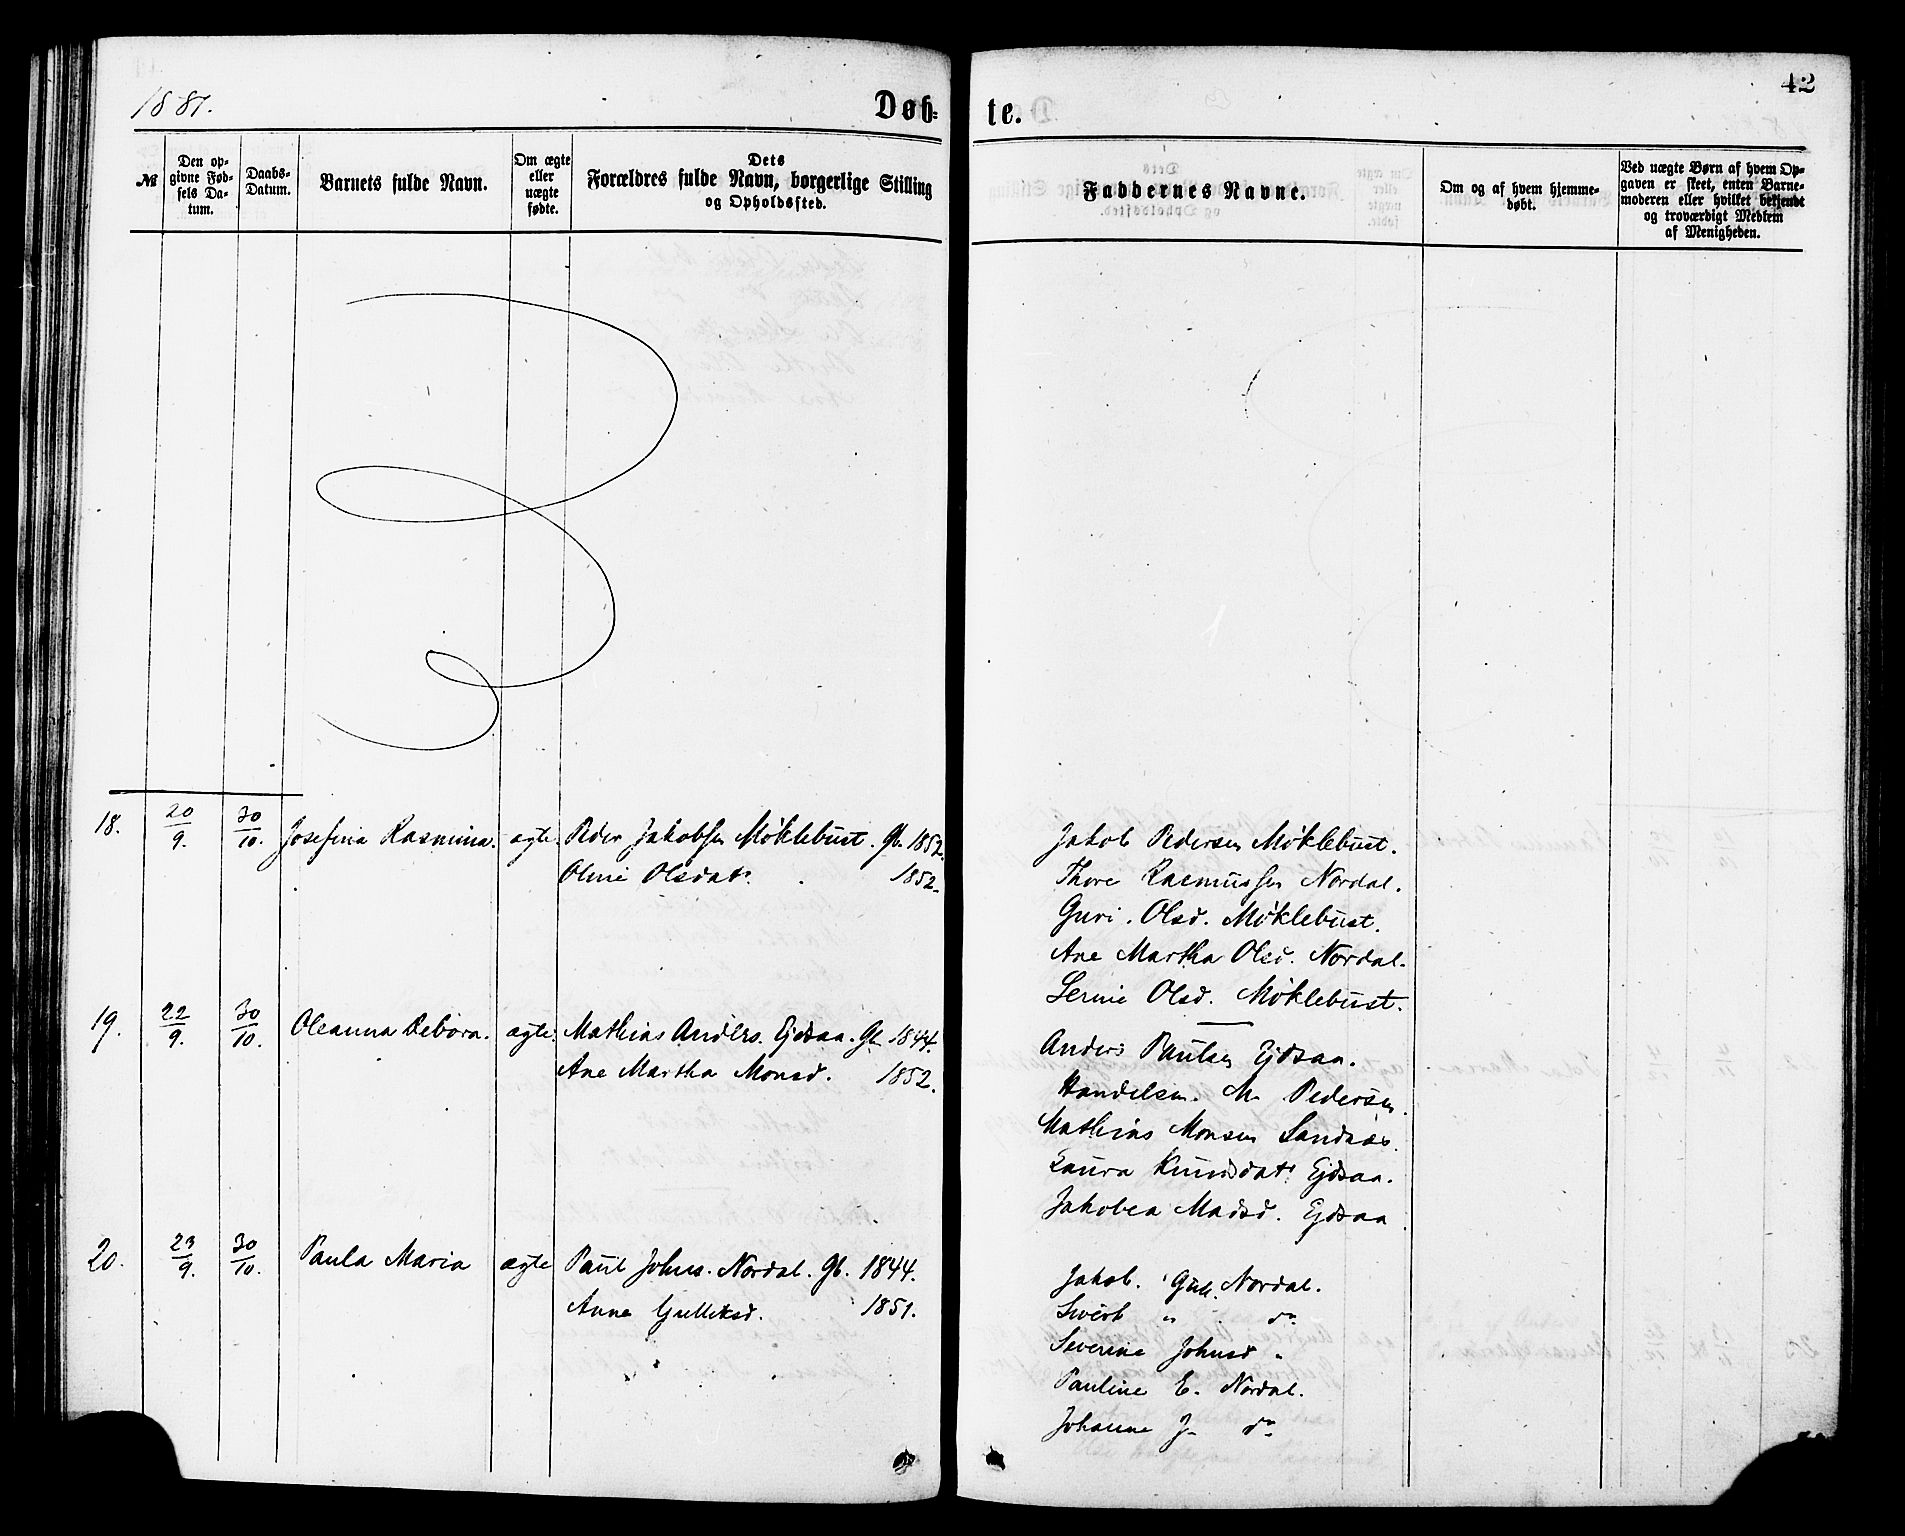 1881.
Døb-
te.
42
№
Den op-
givne Fød-
sels Da-
tum.
Daabs-
Datum.
Barnets fulde Navn.
Om ægte
eller
uægte
fødte.
Dets
Forældres fulde Navn, borgerlige Stilling
og Opholdssted.
Faddernes Navne.
Om og af hvem hjemme-
døbt.
Ved uægte Børn af hvem Op-
gaven er skeet, enten Barne-
moderen eller hvilket bekjendt
og troværdigt Medlem
af Menigheden.
18. 20/9. 30/10. Josefina Rasmina. ægte. Peder Jakobsen Møklebust. Gb. 1852.
Oline Olsdatr. 1852.
Jakob Pedersen Møklebust.
Thore Rasmussen Nordal.
Guri. Olsd. Møklebust.
Ane Martha Olsd. Nordal.
Serine Olsd. Møklebust.
19. 22/9. 30/10. Oleanna Debora. ægte. Mathias Anders. Ejdsaa. Gb. 1844.
Ane Martha Monsd. 1852.
Anders Paulsen Ejdsaa.
Handelsm. M. Pedersen.
Mathias Monsen Sandnæs.
Laura Knudsdatr Ejdsaa.
Jakobea Madsd. Ejdsaa
20. 23/9. 30/10. Paula Maria ægte Paul Johns. Nordal. Gb. 1844.
Anne Gulleksd. 1851.
Jakob. Gull. Nordal.
Sivert " do
Severine Johnsd "
Pauline E. Nordal.
Johanne J. do